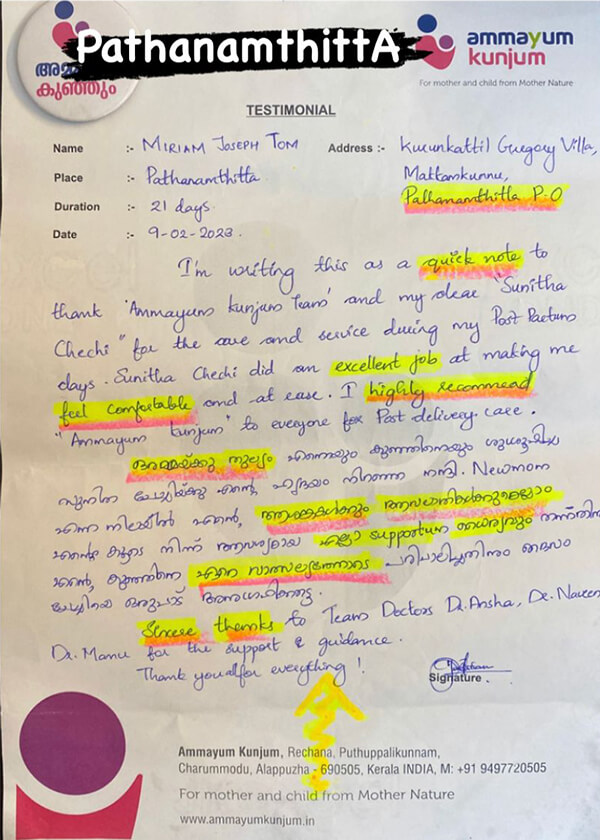 PathanamthittA
കുഞ്ഞും
ammayum
kunjum
For mother and child from Mother Nature
TESTIMONIAL
Name :- MIRIAM JOSEPH TOM
Address :- Kurunkattil Gregory Villa,
Mattamkunnu,
Pathanamthitta P.O
Place :- Pathanamthitta
Duration :- 21 days.
Date :- 9-02-2023.
I'm writing this as a quick note to
thank 'Ammayum kunjum Team' and my dear "Sunitha
Chechi" for the care and service during my Post Partum
days. Sunitha Chechi did an excellent job at making me
feel comfortable and at ease. I highly recommend
"Ammayum kunjum" to everyone for Post delivery care.
അമ്മയ്ക്കു തുല്യം എന്നെയും കുഞ്ഞിനെയും ശുശ്രൂഷിച്ച
സുനിത ചേച്ചിയ്ക്കു എന്റെ ഹൃദയം നിറഞ്ഞ നന്ദി. Newmom
എന്ന നിലയിൽ എന്റെ, ആശങ്കൾക്കും
എന്റെ കൂടെ നിന്ന് ആവശ്യമായ എല്ലാ supportഉം ധൈര്യവും
എന്റെ, കുഞ്ഞിനെ ഏറെ വാത്സല്യത്തോടെ പരിപാലിച്ചതിനും
ഒരുപാട്
Sincere thanks to Team Doctors Dr. Ansha, Dr. Naveen
Dr. Manu for the support & guidance.
Thank you all for everything!
Signature.
Ammayum Kunjum, Rechana, Puthuppalikunnam,
Charummodu, Alappuzha - 690505, Kerala INDIA, M: +91 9497720505
For mother and child from Mother Nature
www.ammayumkunjum.in